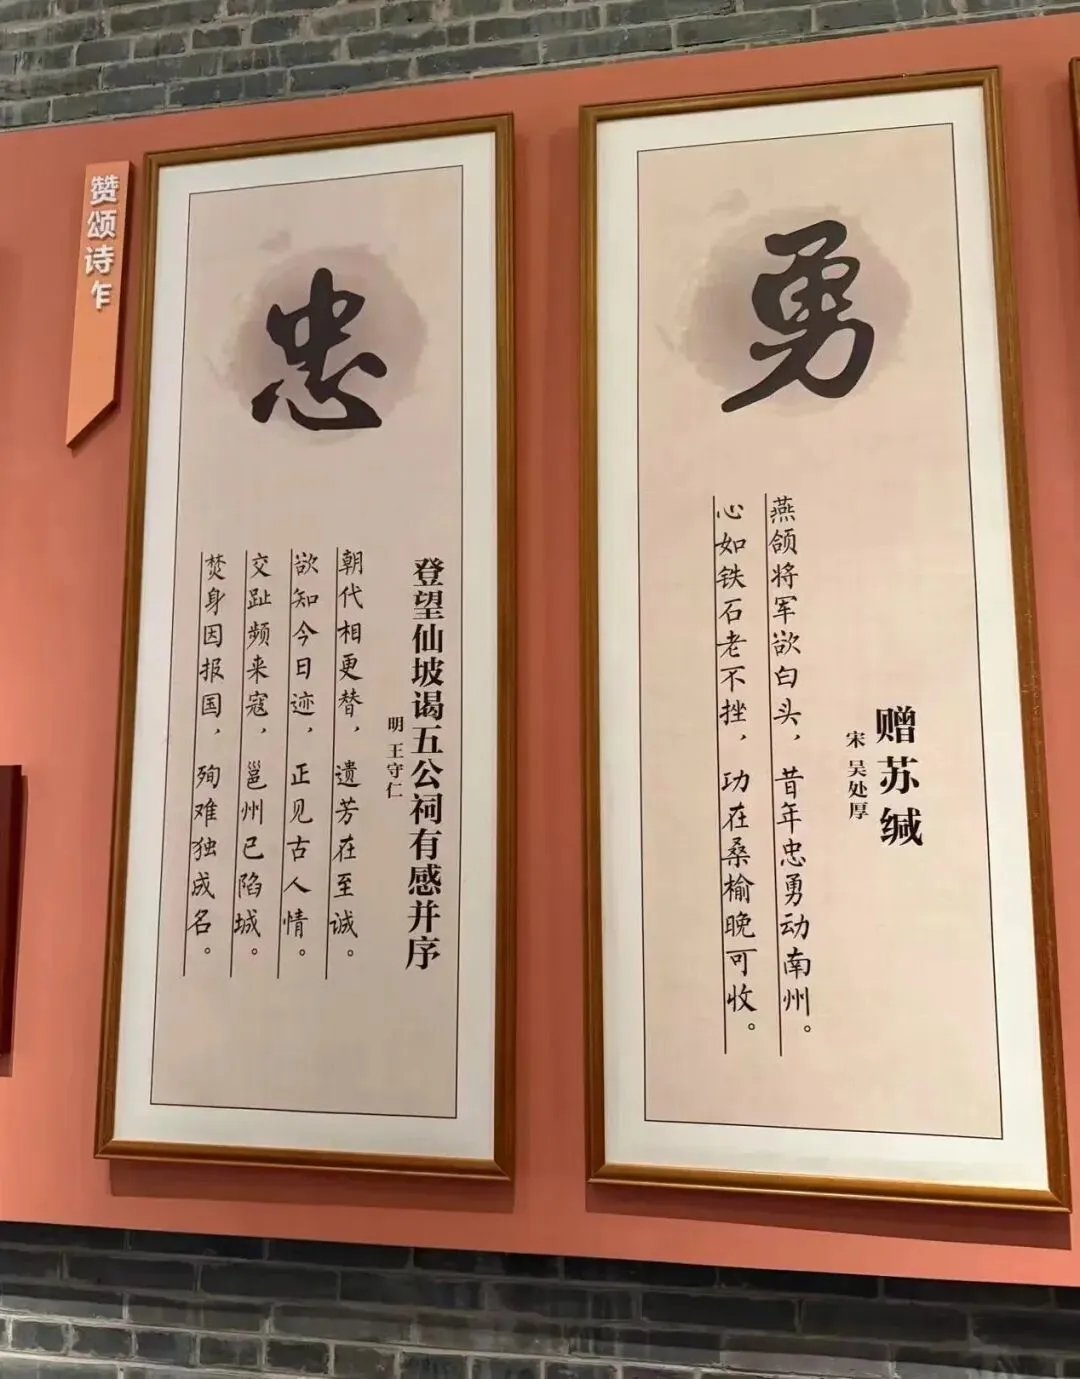 赞颂诗乍
忠
登望仙坡谒五公祠有感并序
明 王守仁
朝代相更替，遗芳在至诚。
欲知今日迹，正见古人情。
交趾频来寇，邕州已陷城。
焚身因报国，殉难独成名。
勇
赠苏缄
宋 吴处厚
燕颌将军欲白头，昔年忠勇动南州。
心如铁石老不挫，功在桑榆晚可收。